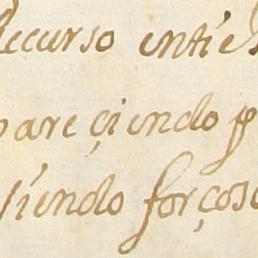 Recurso entie
pareçiendo p
siendo forçoso